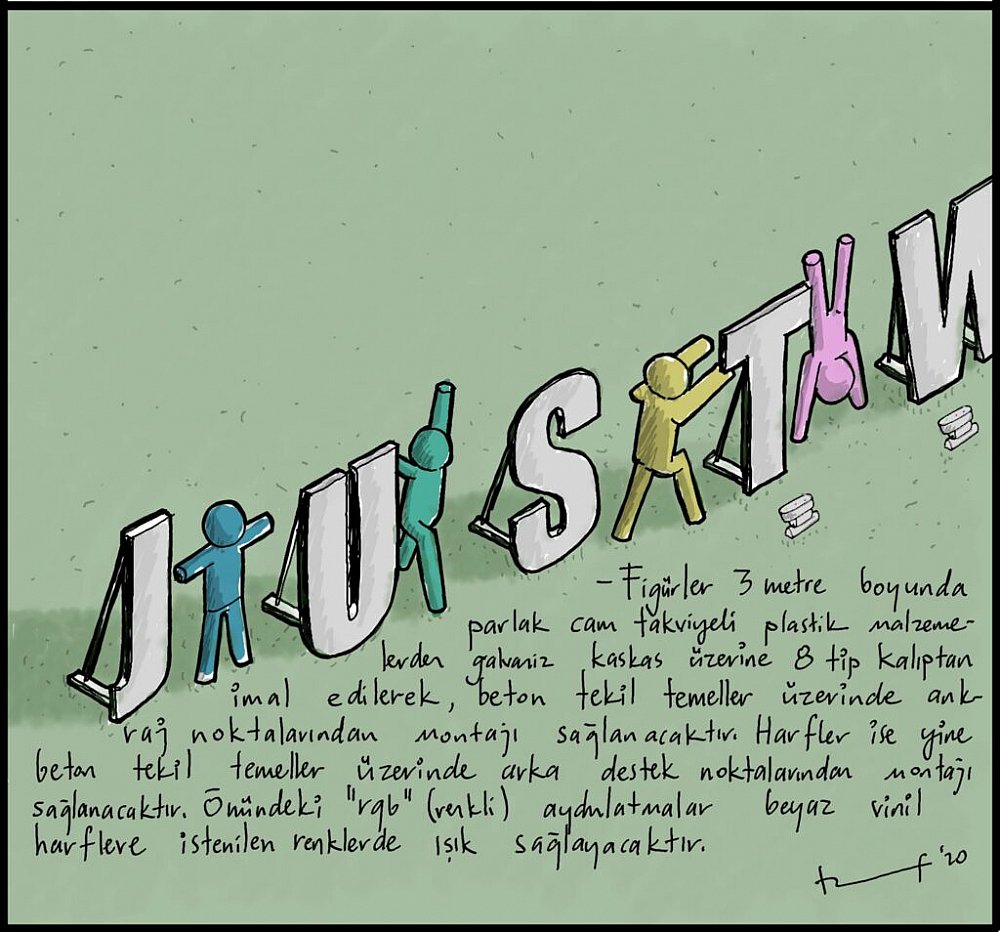 JUSTW
- Figürler 3 metre boyunda
parlak cam takviyeli plastik malzeme-
lerden galvaniz kaskas üzerine 8 tip kalıptan
imal edilerek, beton tekil temeller üzerinde ank-
raj noktalarından montajı sağlanacaktır. Harfler ise yine
beton tekil temeller üzerinde arka destek noktalarından montajı
sağlanacaktır. Önündeki "rgb" (renkli) aydınlatmalar beyaz vinil
harflere istenilen renklerde ışık sağlayacaktır.
'20